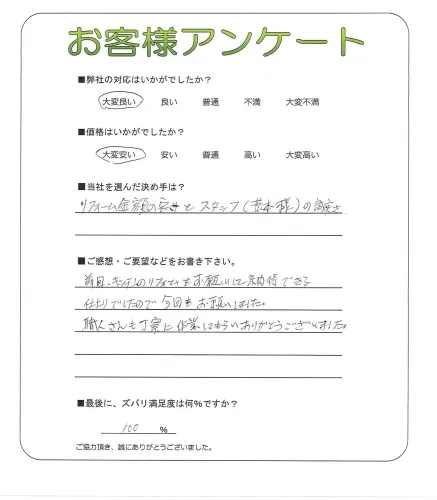 お客様アンケート
■弊社の対応はいかがでしたか?
大変良い 良い 普通 不満 大変不満
■価格はいかがでしたか?
大変安い 安い 普通 高い 大変高い
■当社を選んだ決め手は?
リフォーム金額の安さとスタッフ(様)の
■ご感想・ご要望などをお書き下さい。
前回、キッチンのリフォームをお願いしできる
仕上りでしたので今回もお願いしました。
職人さんも丁寧に作業してもらいありがとうございました。
■最後に、ズバリ満足度は何%ですか?
100 %
ご協力頂き、誠にありがとうございました。